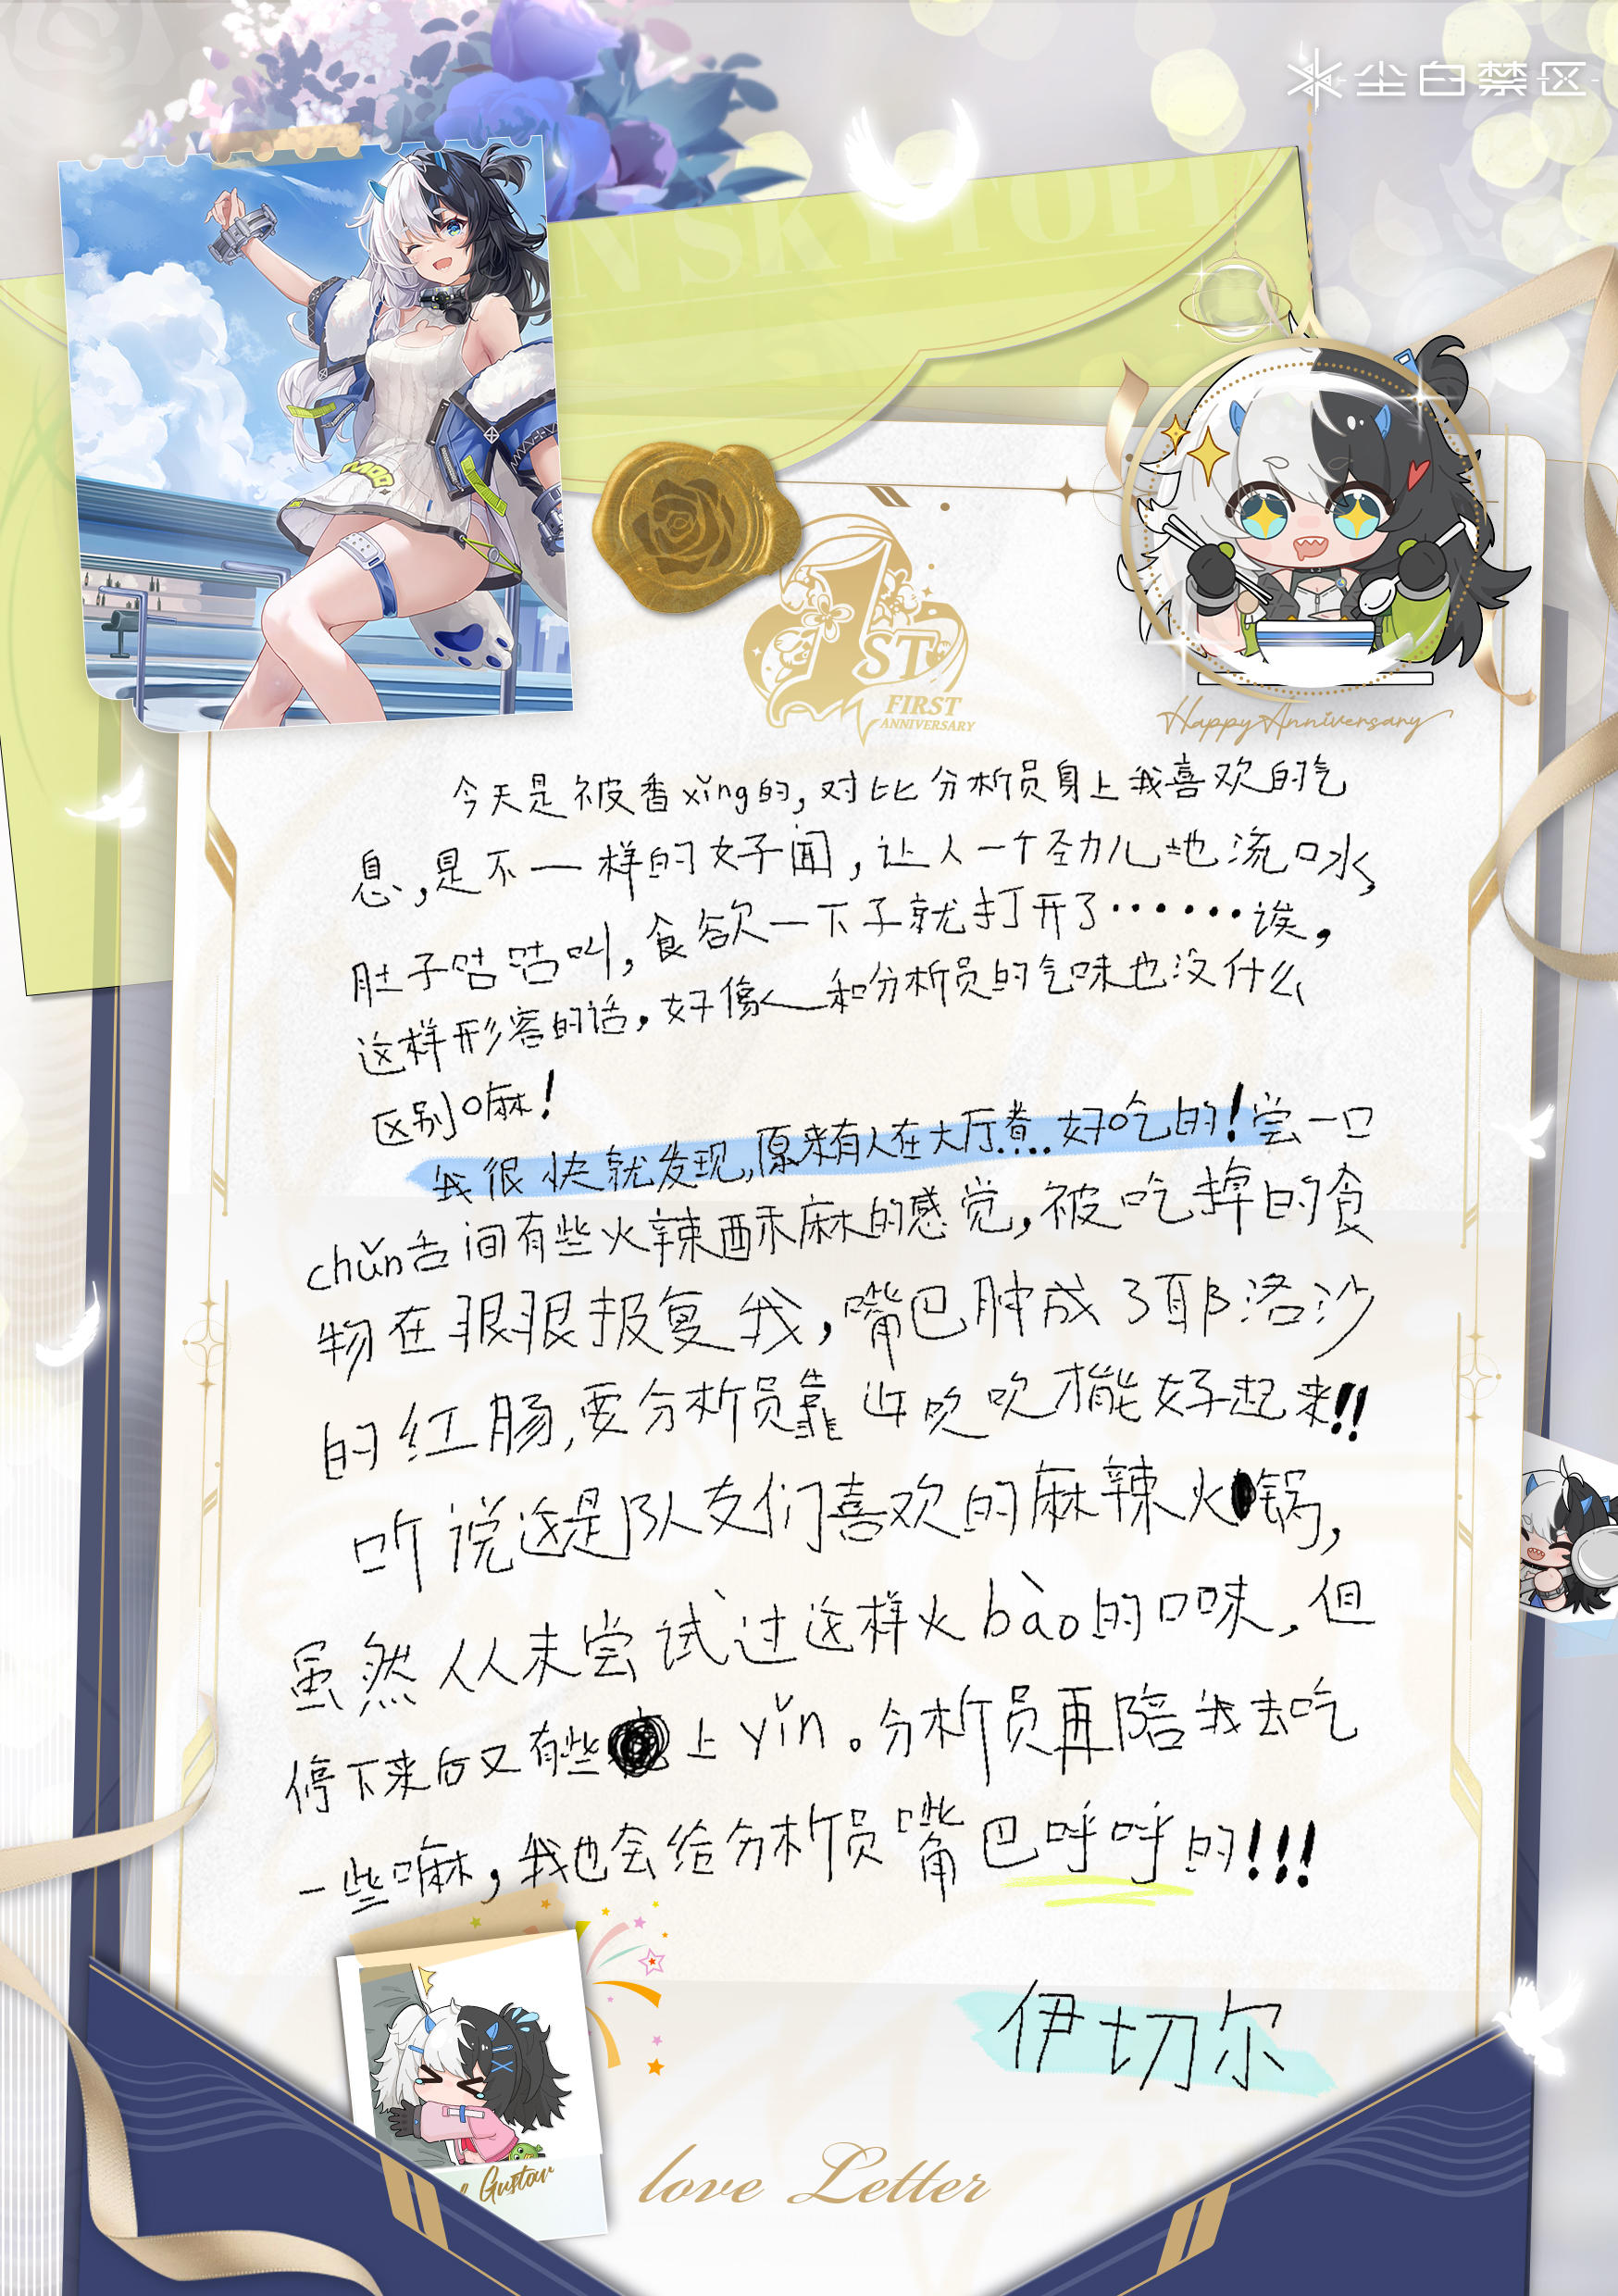 尘白禁区
N SKYTOPI
MOO
1ST
FIRST
ANNIVERSARY
Happy Anniversary
今天是被香xǐng的，对比分析员身上我喜欢的气
息，是不一样的好闻，让人一个劲儿地流口水，
肚子咕咕叫，食欲一下子就打开了······诶，
这样形容的话，好像——和分析员的气味也没什么
区别嘛！
我很快就发现，原来有人在大厅煮....好吃的！尝一口
chǔn舌间有些火辣酥麻的感觉，被吃掉的食
物在狠狠报复我，嘴巴肿成了耶洛沙
的红肠，要分析员靠近吹吹才能好起来！！
听说这是队友们喜欢的麻辣火锅，
虽然从未尝试过这样火bào的口味，但
停下来后又有些上yǐn。分析员再陪我去吃
一些嘛，我也会给分析员嘴巴呼呼的！！！
伊切尔
Gustav
love Letter